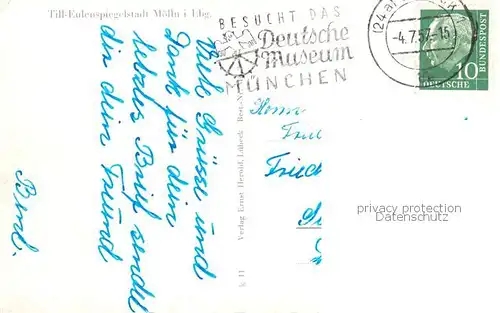 Till-Eulenspiegelstadt Mölln i. Lbg.
BESUCHT DAS
Deutsche
Museum
MÜNCHEN
(24a)
-4.7.57-15
10
DEUTSCHE
BUNDESPOST
Viele Grüsse und
Dank für dein
liebes Brief sendet
dir dein Freund
Bernd.
Verlag Ernst Herold, Lübeck
k 11
Herrn
privacy protection
Datenschutz